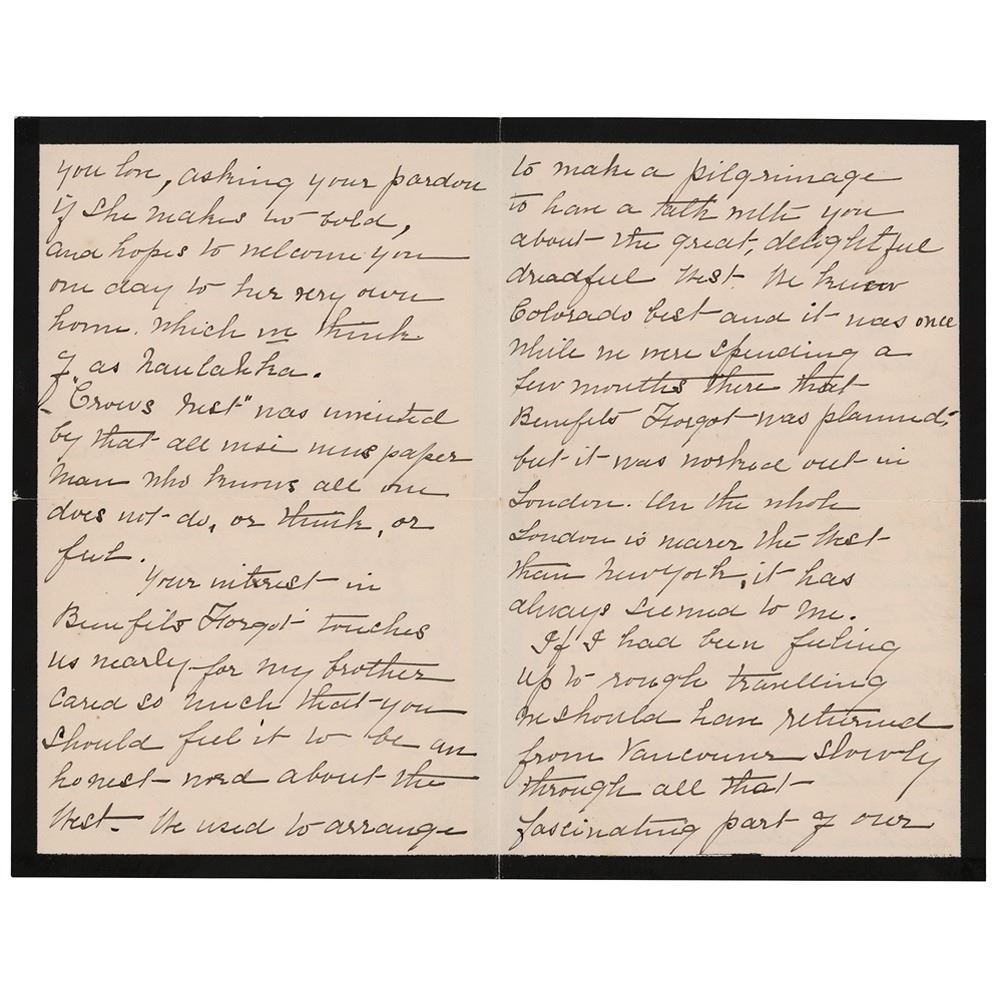 you love, asking your pardon
if she makes too bold,
and hopes to welcome you
one day to her very own
home. Which we think
of as Naulahka.
"Crows Nest" was invented
by that all wise newspaper
man who knows all one
does not do, or think, or
feel.
Your interest in
Benefits Forgot touches
us nearly for my brother
cared so much that you
should feel it to be an
honest word about the
West. We used to arrange
to make a pilgrimage
to have a talk with you
about the great, delightful
dreadful West. We know
Colorado best and it was once
while we were spending a
few months there that
Benefits Forgot was planned,
but it was worked out in
London. On the whole
London is nearer the West
than New York, it has
always seemed to me.
If I had been feeling
up to rough travelling
we should have returned
from Vancouver slowly
through all that
fascinating part of our